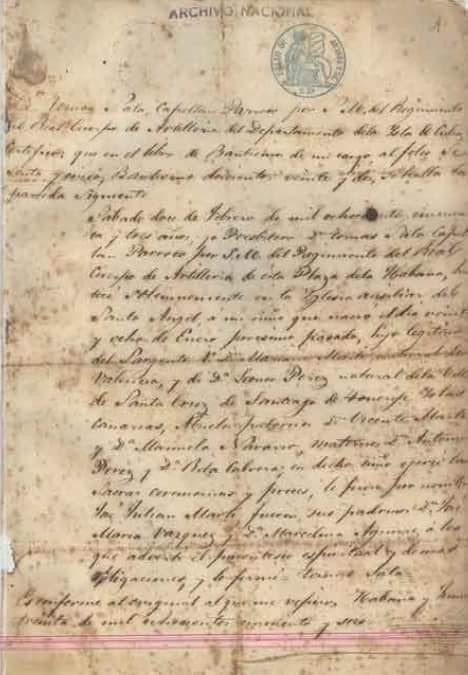 ARCHIVO NACIONAL
Dn. Tomas Sala, Capellan Parroco por S.M. del Regimiento
del Real Cuerpo de Artilleria del Departamento dela Ysla de Cuba,
Certifico: que en el libro de Bautismos de mi cargo, al folio
y Bautismo doscientos veinte y dos, se halla la
partida siguiente
Sabado doce de Febrero de mil ochocientos cincuen
ta y tres años, yo Presbitero Dn. Tomas Sala Cape
llan Parroco por S.M. del Regimiento del Real
Cuerpo de Artilleria de esta Plaza dela Habana, bau
ticé Solemnemente en la Iglesia auxiliar del
Santo Angel á un niño que nacio el dia veinte
y ocho de Enero procsimo pasado, hijo legitimo
del Sargento Dn. Mariano Marti natural de
Valencia, y de Da. Leonor Perez natural dela
de Santa Cruz de Santiago de Tenerife Yslas
Canarias, Abuelos paternos Dn. Vicente Marti
y Da. Manuela Navarro, maternos Dn. Antonio
Perez y Da. Rita Cabrera; en dicho niño ejercí las
Sacras ceremonias y preces, le puse por nombre
José Julian Marti fueron sus padrinos Dn. José
Maria Vazquez y Da. Marcelina Aguirre á los
que advertí el parentesco espiritual y demas
obligaciones, y lo firmé Tomas Sala
Es conforme al original al que me refiero Habana y
treinta de mil ochocientos cincuenta y seis